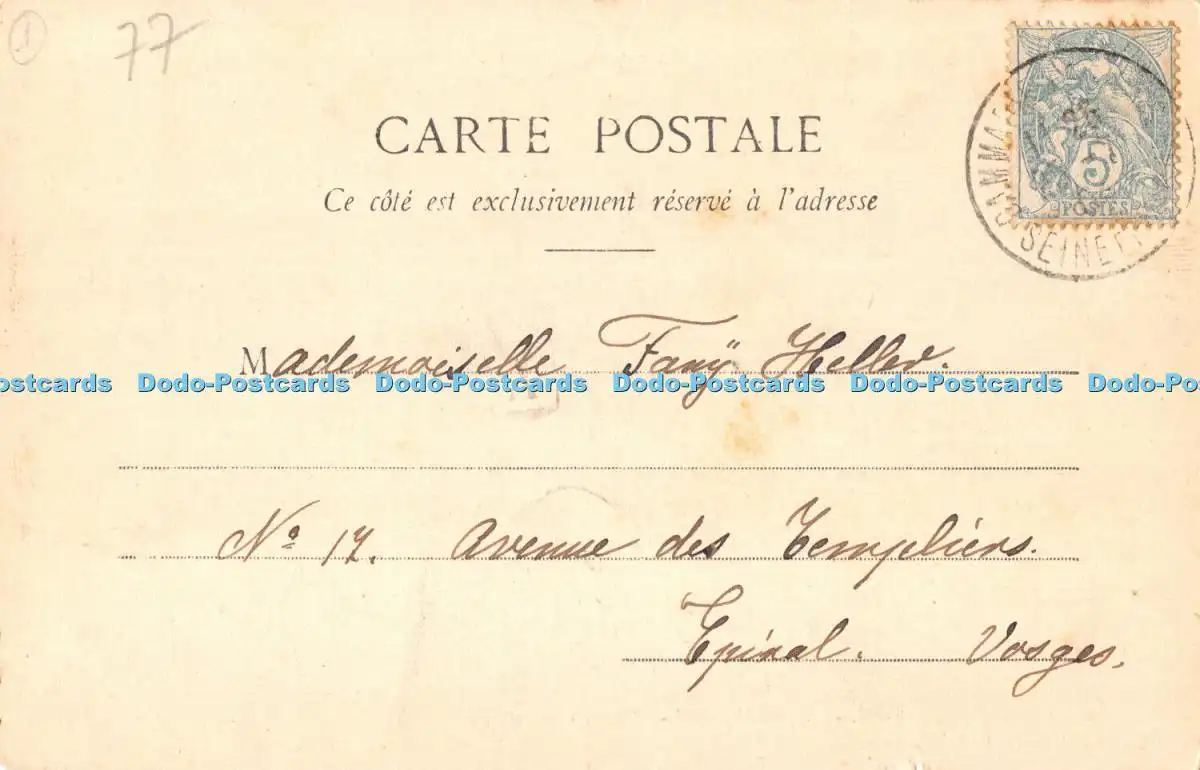 1
77
CARTE POSTALE
Ce côté est exclusivement réservé à l'adresse
5
POSTES
SEINE ET
Mademoiselle Fanÿ Heller.
ostcards Dodo-Postcards Dodo-Postcards Dodo-Postcards Dodo-Postcards Dodo-Post
Nº 17. Avenue des Templiers.
Epinal. Vosges.